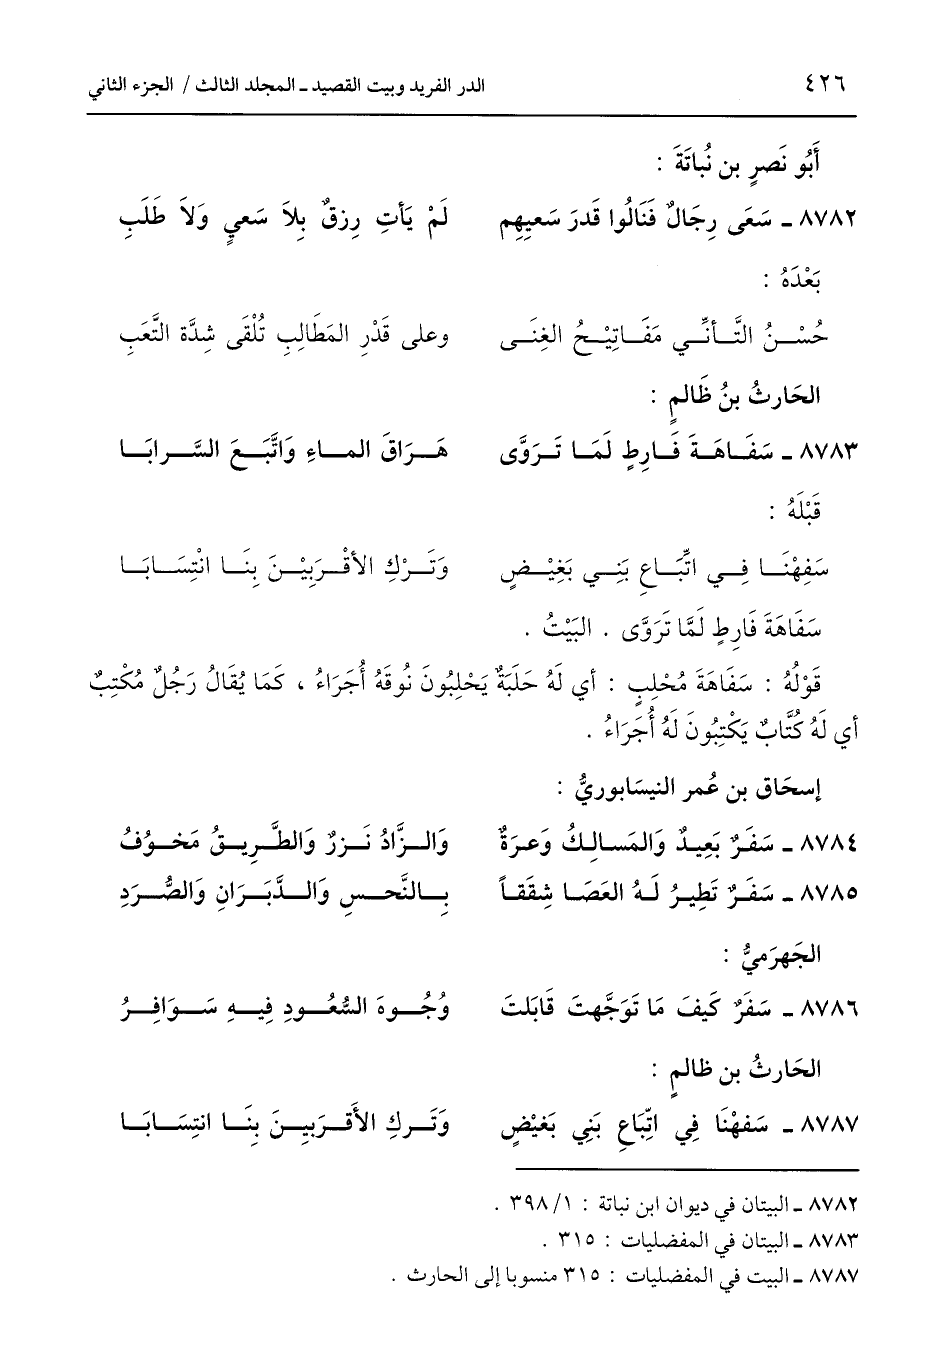 ٤٢٦ الدر الفريد وبيت القصيد ـ المجلد الثالث / الجزء الثاني
أَبُو نَصرٍ بن نُباتَةَ :
٨٧٨٢ ـ سَعَى رِجَالٌ فَنَالُوا قَدرَ سَعيِهِم لَمْ يَأتِ رِزقٌ بِلاَ سَعيٍ وَلاَ طَلَبِ
بَعْدَهُ :
حُسْـنُ التَّـأنِّـي مَفَـاتِيْـحُ الغِنَـى وعلى قَدْرِ المَطَالِبِ تُلْقَى شِدَّة التَّعَبِ
الحَارثُ بنُ ظَالمٍ :
٨٧٨٣ ـ سَفَـاهَـةَ فَـارِطٍ لَمَـا تَـرَوَّى هَـرَاقَ المـاءِ وَاتَّبَـعَ السَّـرابَـا
قَبْلَهُ :
سَفِهْنَـا فِـي اتِّبَـاعِ بَنِـي بَغِيْـضٍ وَتَـرْكِ الأقْـرَبِيْـنَ بِنَـا انْتِسَـابَـا
سَفَاهَةَ فَارِطٍ لَمَّا تَرَوَّى . البَيْتُ .
قَوْلُهُ : سَفَاهَةَ مُحْلِبٍ : أي لَهُ حَلَبَةٌ يَحْلِبُونَ نُوقَهُ أُجَرَاءُ ، كَمَا يُقَالُ رَجُلٌ مُكْتِبٌ
أي لَهُ كُتَّابٌ يَكْتِبُونَ لَهُ أُجَرَاءُ .
إسحَاق بن عُمر النيسَابوريُّ :
٨٧٨٤ ـ سَفَرٌ بَعِيدٌ وَالمَسـالِكُ وَعرَةٌ وَالـزَّادُ نَـزرٌ وَالطَّرِيـقُ مَخـوُفُ
٨٧٨٥ ـ سَفَـرٌ تَطِيـرُ لَـهُ العَصَـا شِقَقـاً بِـالنَّحـسِ وَالـدَّبَـرَانِ وَالصُّـرَدِ
الجَهرَميُّ :
٨٧٨٦ ـ سَفَرٌ كَيفَ مَا تَوَجَّهتَ قَابَلتَ وُجُـوهَ السُّعُـودِ فِيـهِ سَـوَافِـرُ
الحَارثُ بن ظالمٍ :
٨٧٨٧ ـ سَفهْنَا فِي اتِّبَاعِ بَنِي بَغيْضٍ وَتَـركِ الأَقـرَبِيـنَ بِنَـا انتِسَـابَـا
٨٧٨٢ ـ البيتان في ديوان ابن نباتة : ١/ ٣٩٨ .
٨٧٨٣ ـ البيتان في المفضليات : ٣١٥ .
٨٧٨٧ ـ البيت في المفضليات : ٣١٥ منسوبا إلى الحارث .